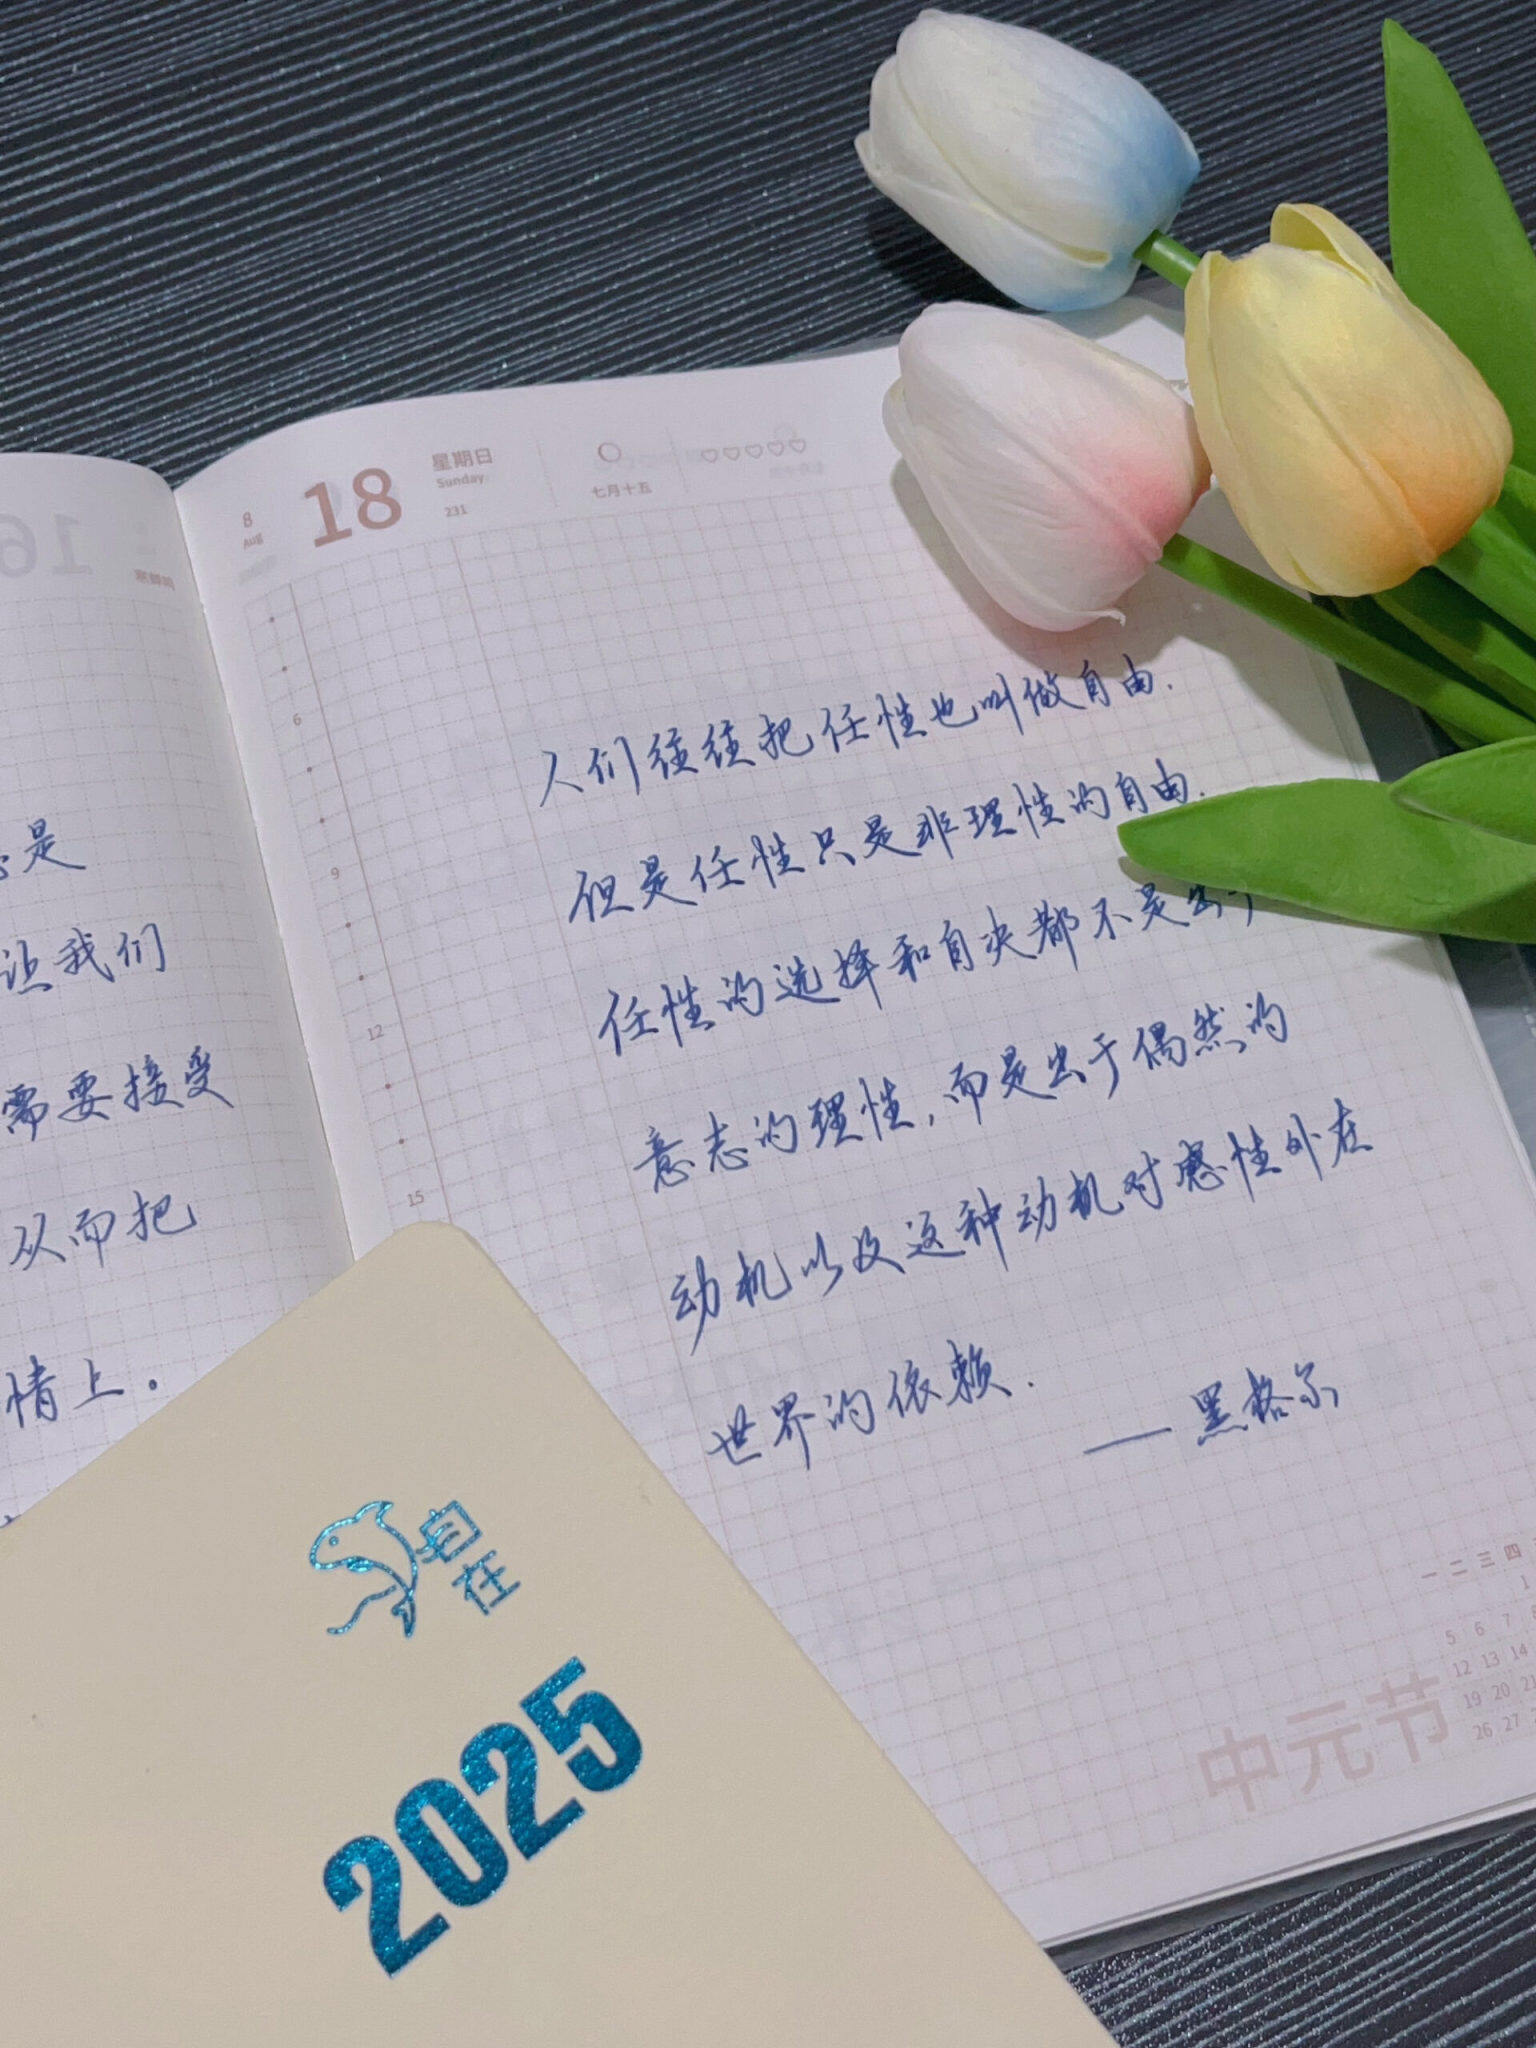 8
Aug
18
星期日
Sunday
231
七月十五
人们往往把任性也叫做自由.
但是任性只是非理性的自由.
任性的选择和自决都不是出于
意志的理性,而是出于偶然的
动机以及这种动机对感性外在
世界的依赖.
——黑格尔
6
9
12
15
是
让我们
需要接受
从而把
情上。
16
自在
2025
一 二 三 四
1
5 6 7
12 13 14
19 20 21
26 27
中元节